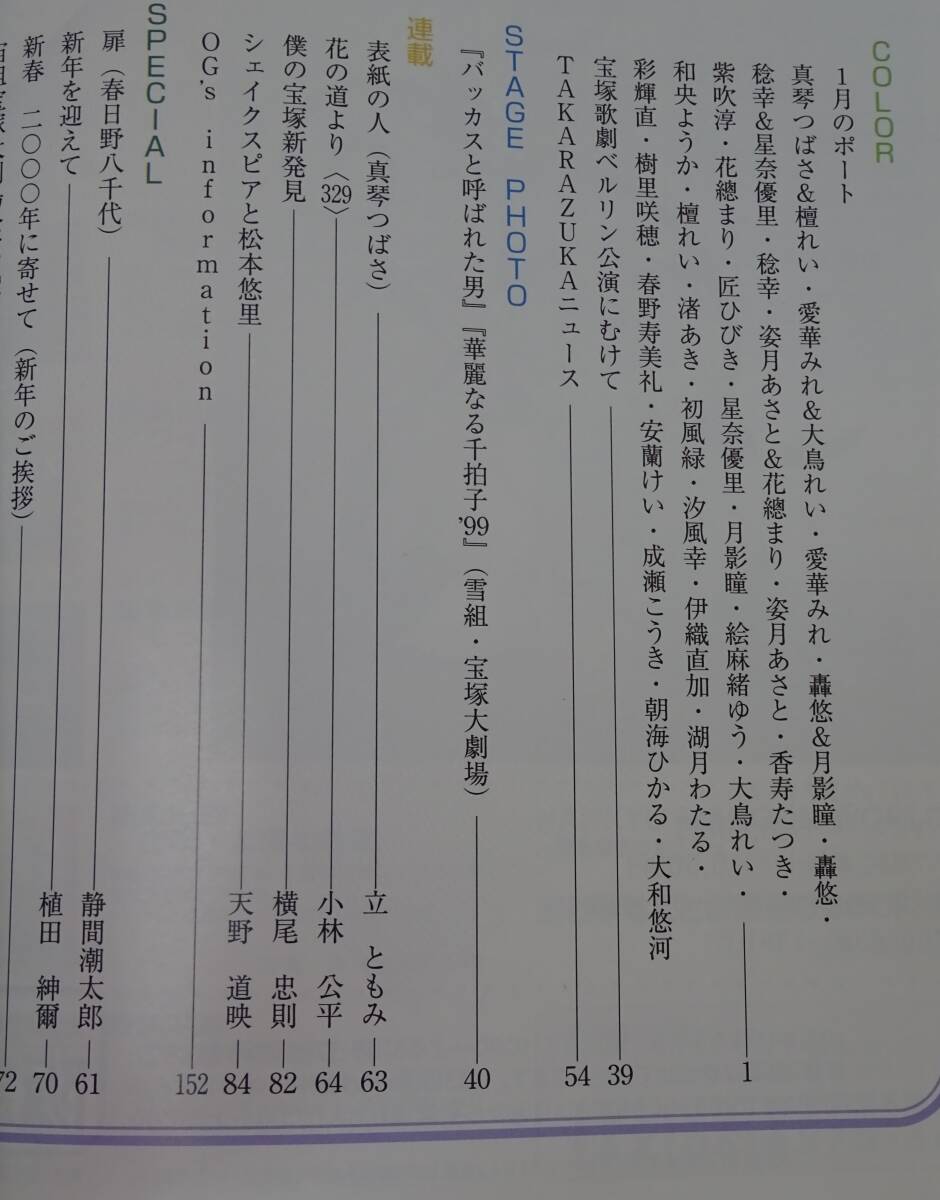 COLOR
1月のポート
真琴つばさ&檀れい・愛華みれ&大鳥れい・愛華みれ・轟悠&月影瞳・轟悠・
稔幸&星奈優里・稔幸・姿月あさと&花總まり・姿月あさと・香寿たつき・
紫吹淳・花總まり・匠ひびき・星奈優里・月影瞳・絵麻緒ゆう・大鳥れい・
和央ようか・檀れい・渚あき・初風緑・汐風幸・伊織直加・湖月わたる・
彩輝直・樹里咲穂・春野寿美礼・安蘭けい・成瀬こうき・朝海ひかる・大和悠河 1
宝塚歌劇ベルリン公演にむけて 39
TAKARAZUKAニュース 54
STAGE PHOTO
『バッカスと呼ばれた男』『華麗なる千拍子'99』(雪組・宝塚大劇場) 40
連載
表紙の人(真琴つばさ) 立 ともみ 63
花の道より〈329〉 小林 公平 64
僕の宝塚新発見 横尾 忠則 82
シェイクスピアと松本悠里 天野 道映 84
OG's information 152
SPECIAL
扉(春日野八千代) 静間潮太郎 61
新年を迎えて 植田 紳爾 70
新春 二〇〇〇年に寄せて(新年のご挨拶) 72